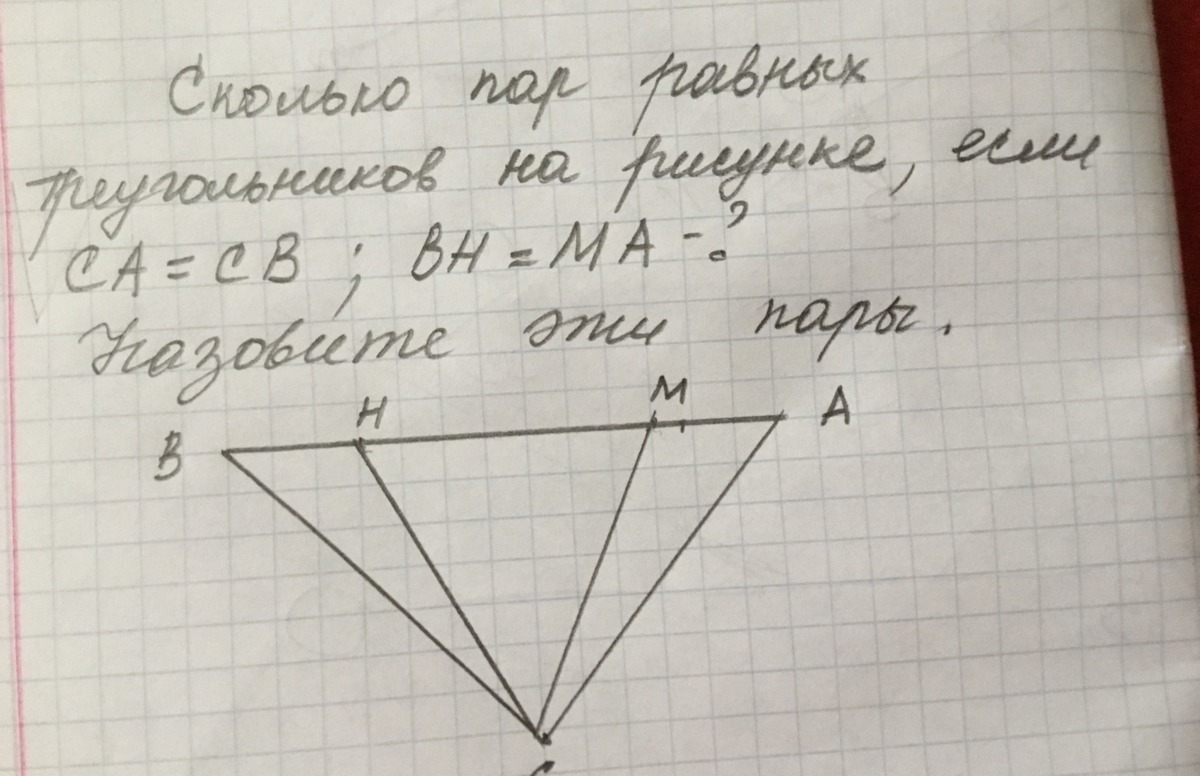 Сколько пар равных
треугольников на рисунке, если
CA = CB ; BH = MA - ?
Назовите эти пары.
B H M A
C